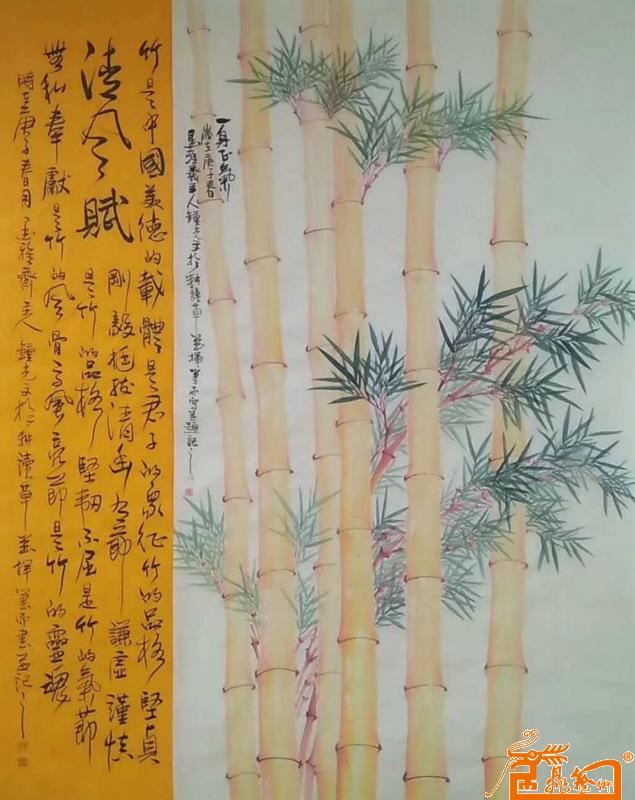 一身正氣
歲在庚子春
齋主人鍾光文於耕讀草堂揮筆而寫並題記之
清风賦
竹是中國美德的載體是君子的象征竹的品格堅貞
剛毅挺拔清幽有節謙虛謹慎
是竹的品格堅韌不屈是竹的氣節
無私奉獻是竹的风骨高風亮節是竹的靈魂
時在庚子春月齋主人鍾光文於耕讀草堂揮筆而書並記之